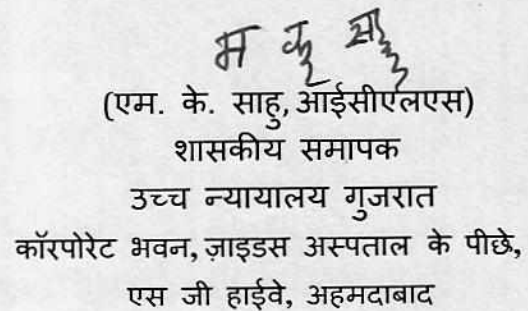 म कु साहु
(एम. के. साहु, आईसीएलएस)
शासकीय समापक
उच्च न्यायालय गुजरात
कॉरपोरेट भवन, ज़ाइडस अस्पताल के पीछे,
एस जी हाईवे, अहमदाबाद